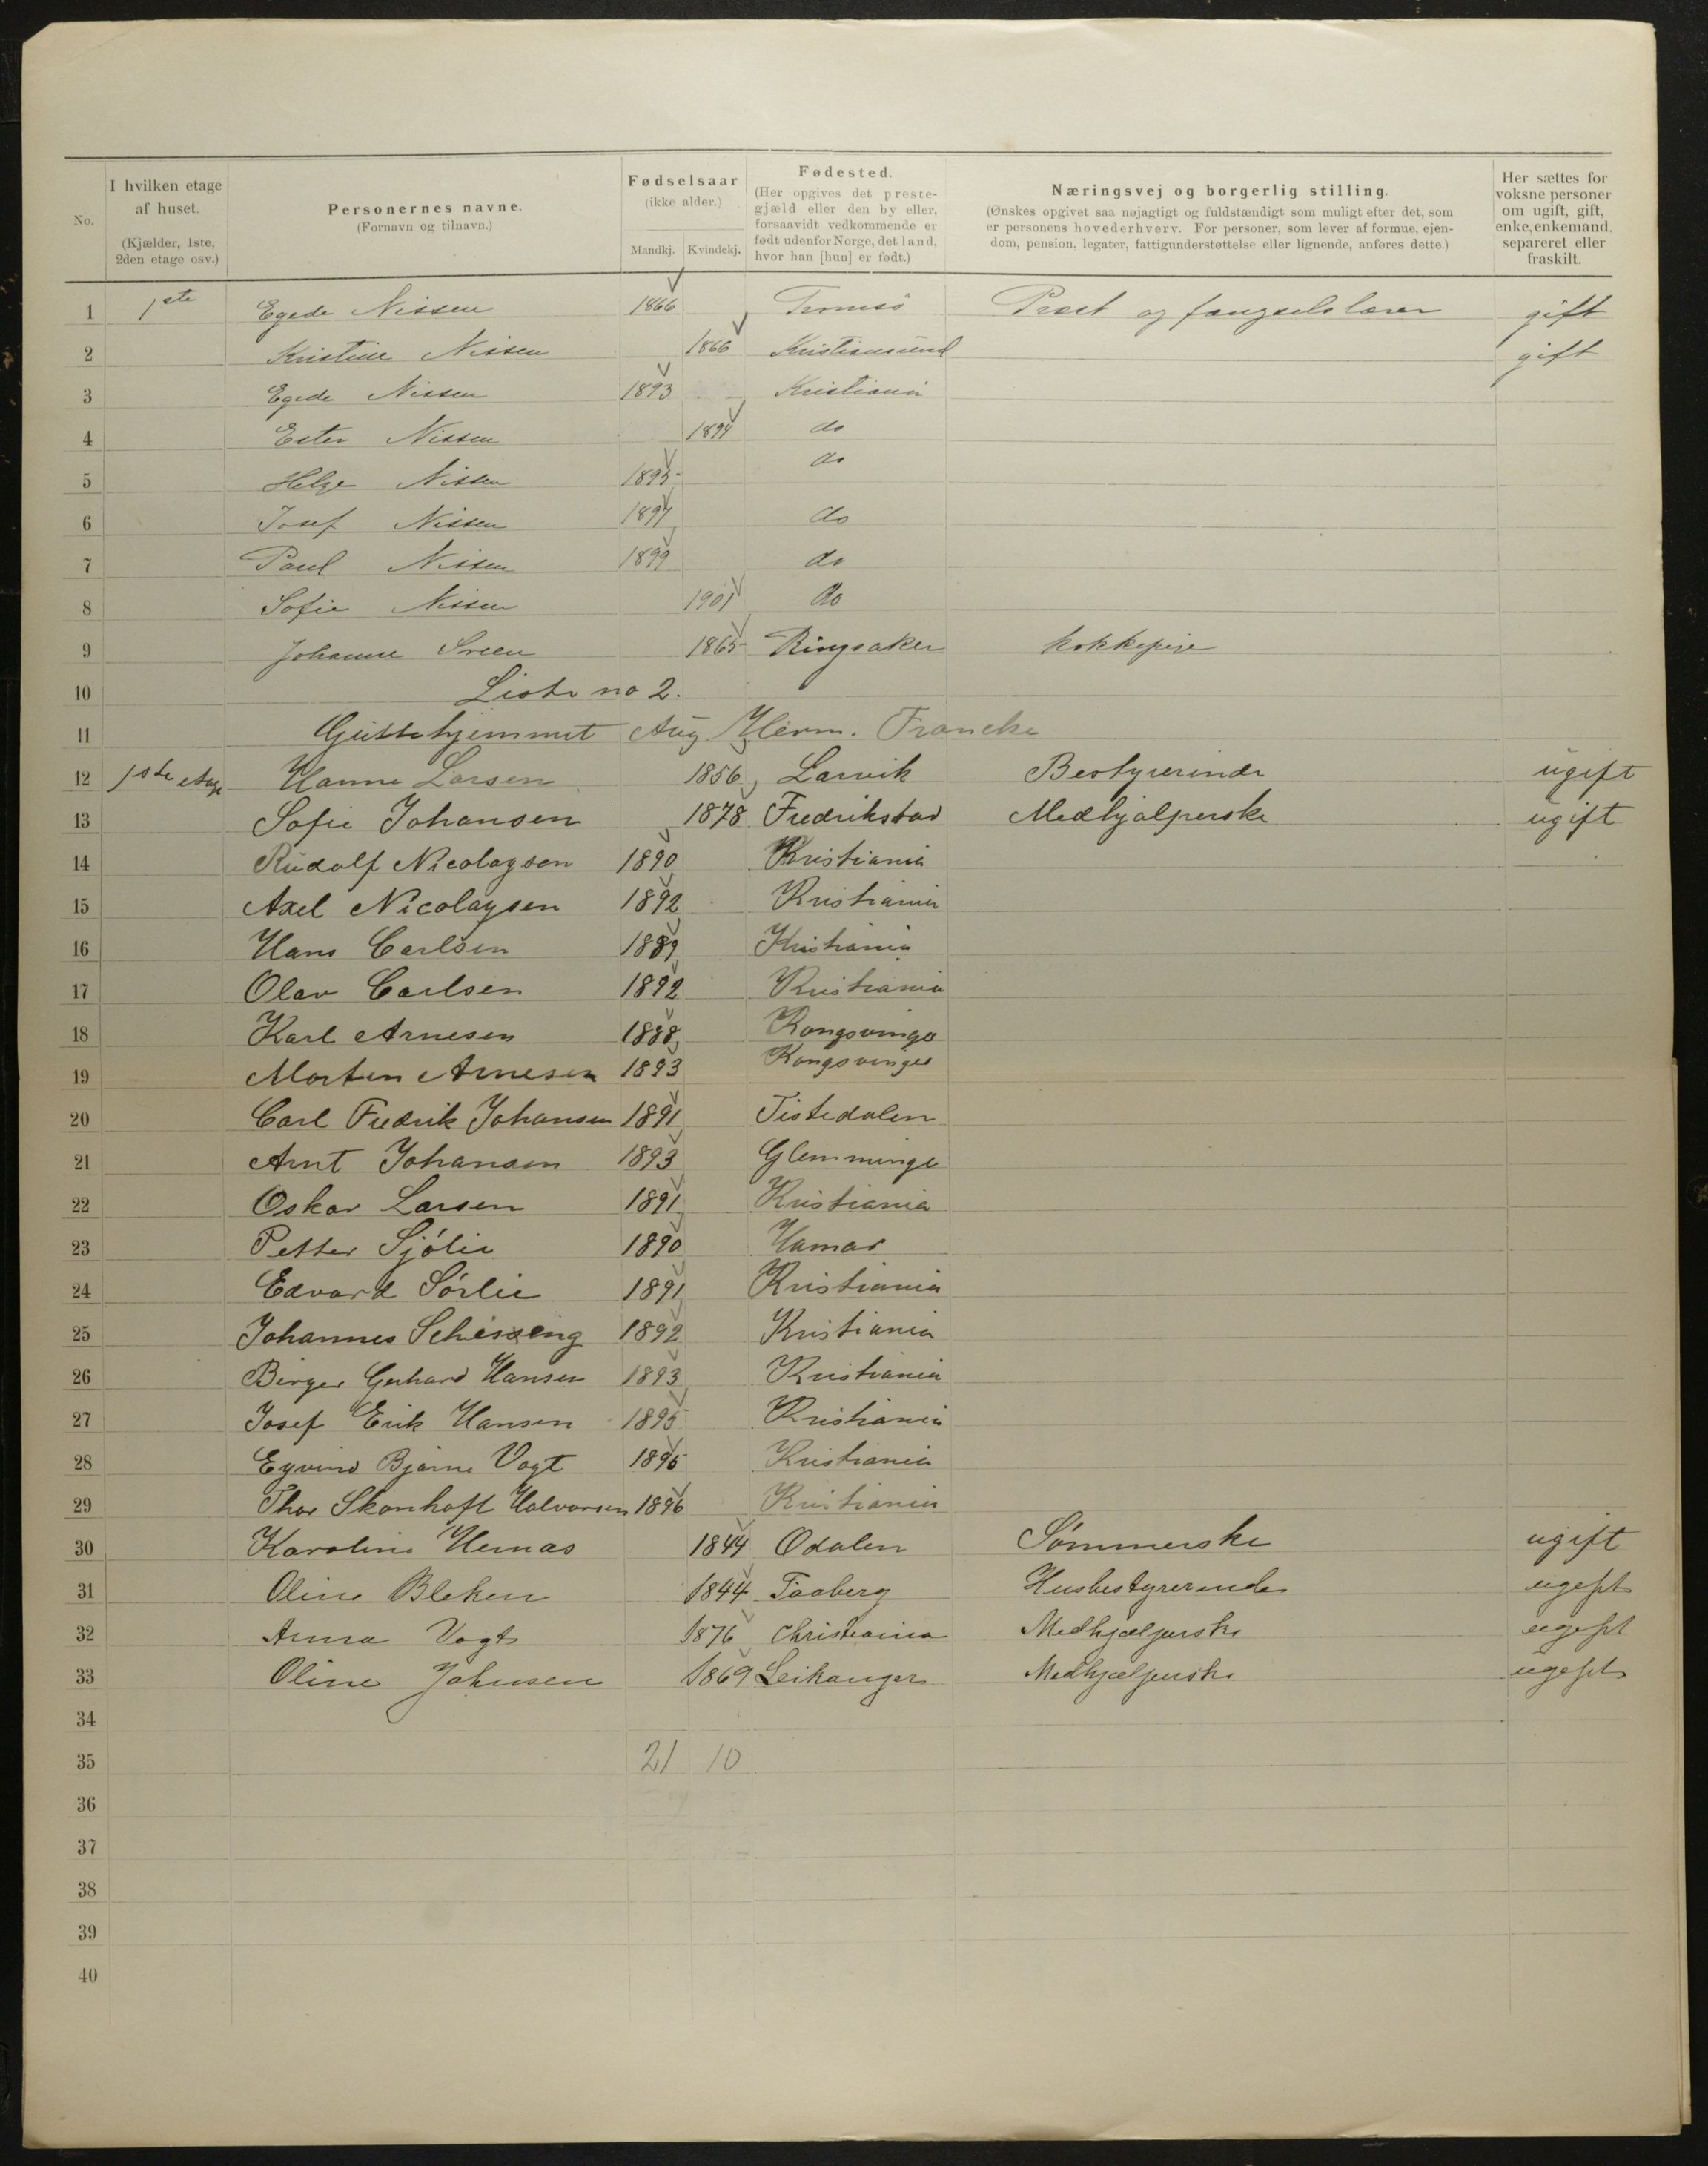 No. | I hvilken etage af huset. (Kjælder, 1ste, 2den etage osv.) | Personernes navne. (Fornavn og tilnavn.) | Fødselsaar (ikke alder.) Mandkj. Kvindekj. | Fødested. (Her opgives det prestegjæld eller den by eller, forsaavidt vedkommende er født udenfor Norge, det land, hvor han [hun] er født.) | Næringsvej og borgerlig stilling. (Ønskes opgivet saa nøjagtigt og fuldstændigt som muligt efter det, som er personens hovederhverv. For personer, som lever af formue, ejendom, pension, legater, fattigunderstøttelse eller lignende, anføres dette.) | Her sættes for voksne personer om ugift, gift, enke, enkemand, separeret eller fraskilt.
1 1ste Egede Nissen 1866 Tromsö Præst og fængselslærer gift
2 Kristine Nissen 1866 Kristiansund gift
3 Egede Nissen 1893 Kristiania
4 Ester Nissen 1894 do
5 Helge Nissen 1895 do
6 Josef Nissen 1897 do
7 Paul Nissen 1899 do
8 Sofie Nissen 1901 do
9 Johanne Sveen 1865 Ringsaker kokkepige
10 Liste no 2.
11 Guttehjemmet Aug Herm. Francke
12 1ste etage Hanna Larsen 1856 Larvik Bestyrerinde ugift
13 Sofie Johansen 1878 Fredrikstad Medhjælperske ugift
14 Rudolf Nicolaysen 1890 Kristiania
15 Axel Nicolaysen 1892 Kristiania
16 Hans Carlsen 1889 Kristiania
17 Olav Carlsen 1892 Kristiania
18 Karl Arnesen 1888 Kongsvinger
19 Morten Arnesen 1893 Kongsvinger
20 Carl Fredrik Johansen 1891 Tistedalen
21 Arnt Johansen 1893 Glemminge
22 Oskar Larsen 1891 Kristiania
23 Petter Sjölie 1890 Hamar
24 Edvard Sörlie 1891 Kristiania
25 Johannes 1892 Kristiania
26 Birger Gerhard Hansen 1893 Kristiania
27 Josef Erik Hansen 1895 Kristiania
28 Eyvind Bjarne Vogt 1895 Kristiania
29 Thor Skonhoft Halvorsen 1896 Kristiania
30 Karoline Hernas 1844 Odalen Sömmerske ugift
31 Oline Bleken 1844 Faaberg Husbestyrerinde ugift
32 Anna Vogt 1876 Christiania Medhjælperske ugift
33 Oline Johnsen 1869 Leikanger Medhjælperske ugift
34
35 21 10
36
37
38
39
40